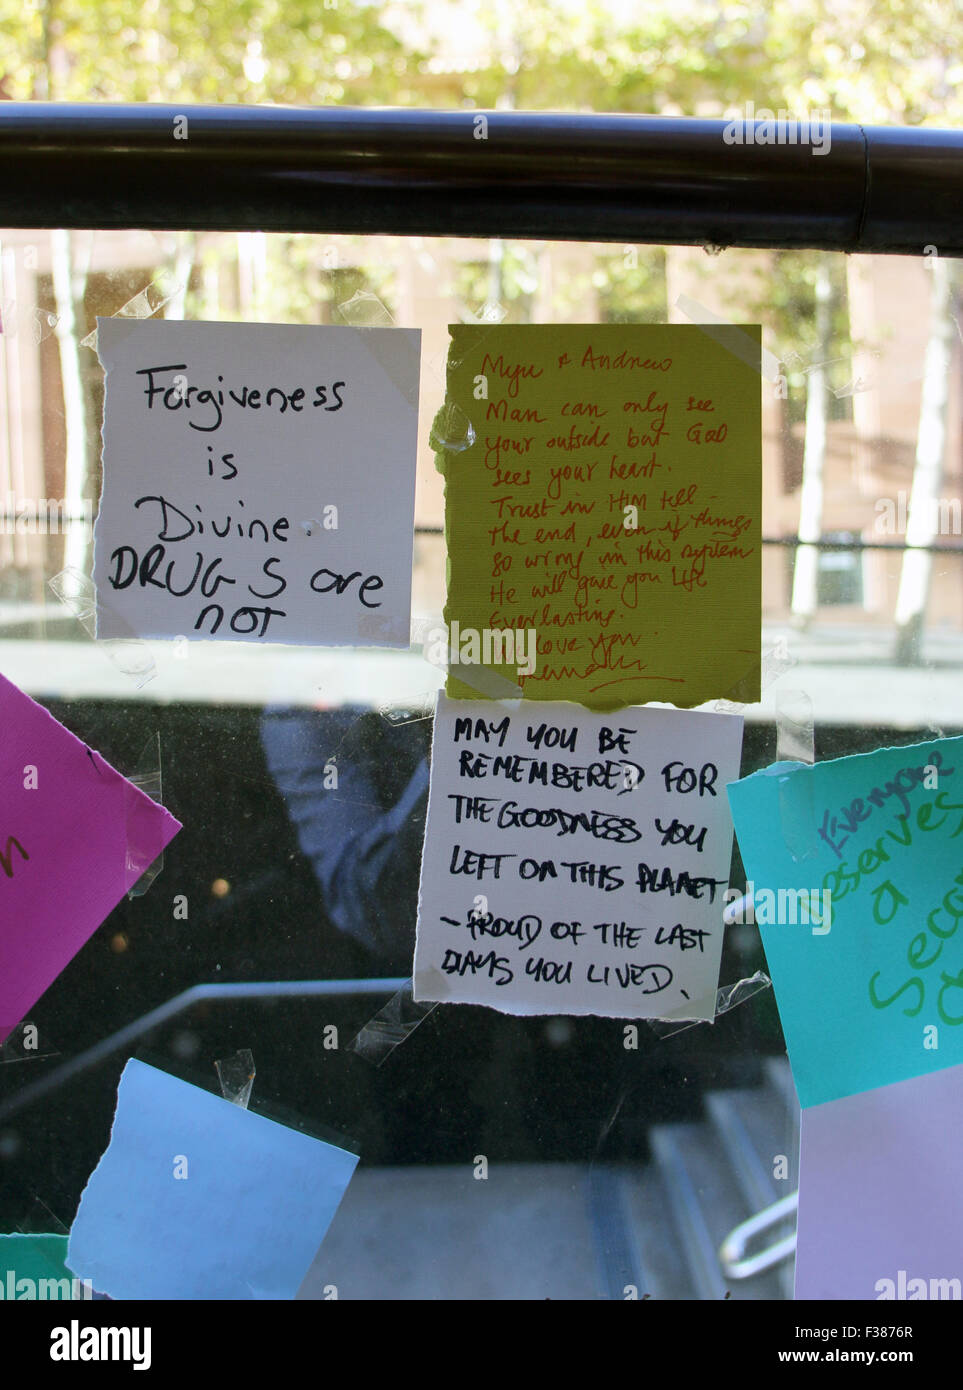 Forgiveness
is
Divine.
DRUGS are
NOT
Myu & Andrew
Man can only see
your outside but God
sees your heart.
Trust in Him till
the end, even if things
go wrong in this system
He will give you life
Everlasting.
We love you
MAY YOU BE
REMEMBERED FOR
THE GOODNESS YOU
LEFT ON THIS PLANET
- PROUD OF THE LAST
DAYS YOU LIVED.
Everyone
deserves
a
Seco
alamy
Image ID: F3876R
www.alamy.com